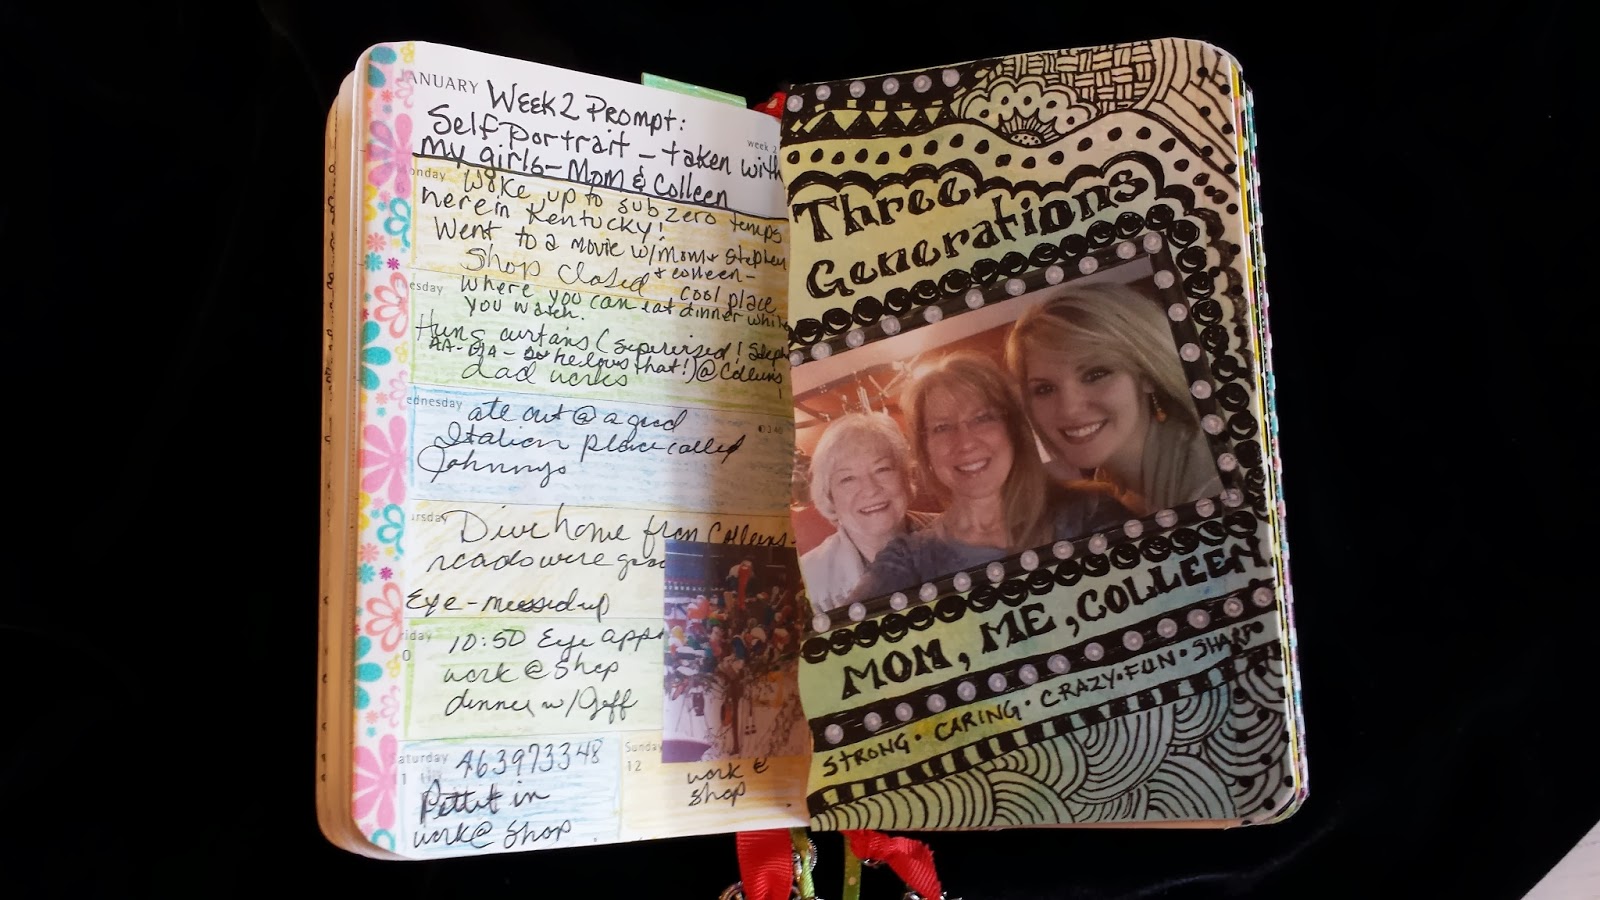 ANUARY Week 2 Prompt:
Self Portrait - taken with
week 2
my girls - Mom & Colleen
onday Woke up to sub zero temps
6 here in Kentucky!
Went to a movie w/Mom + Stephen
Shop closed + colleen -
cool place
esday where you can eat dinner while
you watch.
Hung curtains (supervised! Steph
helps that!) @ Colleens
dad works
ednesday ate out @ a good
Italian place called
Johnnys
ursday Drive home from Colleens -
roads were good
Eye - messed up
iday 10:50 Eye appt
0 work @ Shop
dinner w/ Jeff
aturday 463973348
1
Pettit in
work @ Shop
Sunday
12
work @
Shop
Three
Generations
MOM, ME, COLLEEN
STRONG · CARING · CRAZY · FUN · SHARP